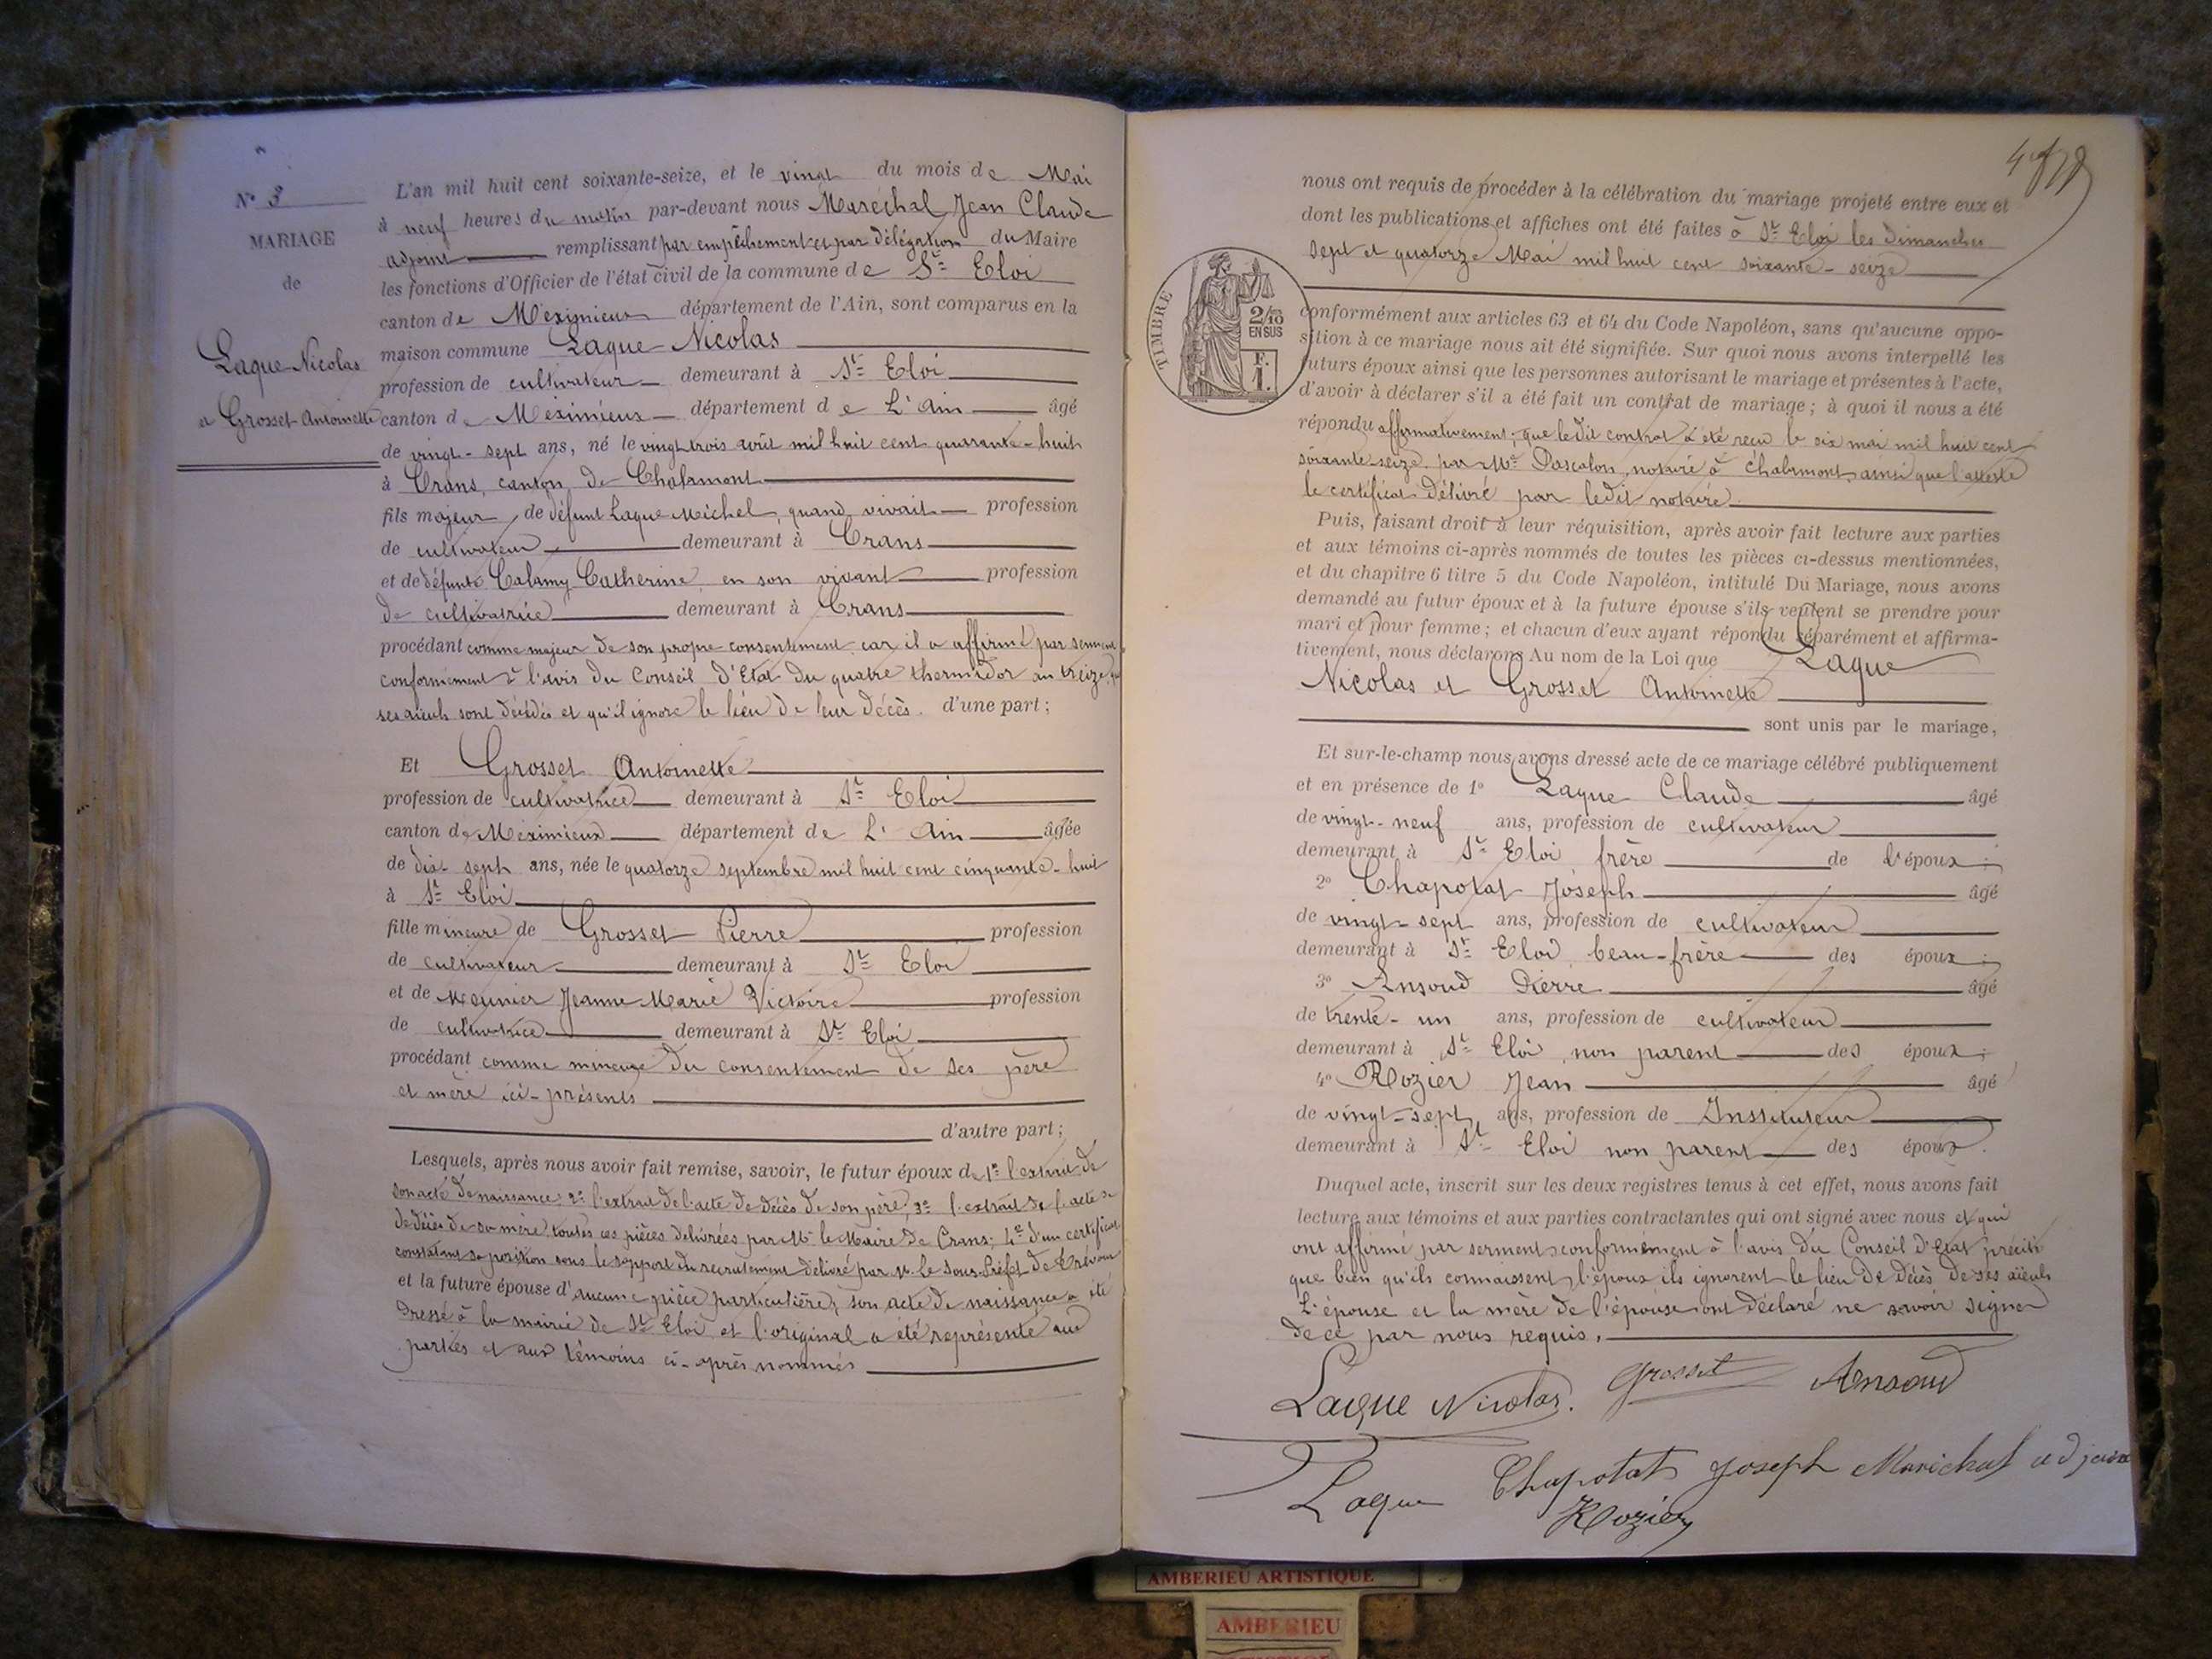 N° 3
MARIAGE
de
Laque Nicolas
et Grosset Antoinette
L'an mil huit cent soixante-seize, et le vingt du mois de Mai
à neuf heures du matin par-devant nous Maréchal Jean Claude
adjoint remplissant par empêchement et par délégation du Maire
les fonctions d'Officier de l'état civil de la commune de St Eloi
canton de Meximieux département de l'Ain, sont comparus en la
maison commune Laque Nicolas
profession de cultivateur demeurant à St Eloi
canton de Meximieux département de L'Ain âgé
de vingt-sept ans, né le vingt trois août mil huit cent quarante-huit
à Crans, canton de Chalamont
fils majeur de défunt Laque Michel, quand vivait profession
de cultivateur demeurant à Crans
et de défunte Calamy Catherine en son vivant profession
de cultivatrice demeurant à Crans
procédant comme majeur de son propre consentement car il a affirmé par serment
conformément à l'avis du Conseil d'Etat du quatre thermidor an treize, que
ses aïeuls sont décédés et qu'il ignore le lieu de leur décès. d'une part;
Et Grosset Antoinette
profession de cultivatrice demeurant à St Eloi
canton de Meximieux département de L'Ain âgée
de dix-sept ans, née le quatorze septembre mil huit cent cinquante-huit
à St Eloi
fille mineure de Grosset Pierre profession
de cultivateur demeurant à St Eloi
et de Meunier Jeanne Marie Victoire profession
de cultivatrice demeurant à St Eloi
procédant comme mineure du consentement de ses père
et mère ici-présents
d'autre part;
Lesquels, après nous avoir fait remise, savoir, le futur époux de 1° l'extrait de
son acte de naissance; 2° l'extrait de l'acte de décès de son père; 3° l'extrait de l'acte de
de décès de sa mère, toutes ces pièces délivrées par Mr le Maire de Crans; 4° d'un certificat
constatant sa position sous le rapport du recrutement délivré par M. le Sous-Préfet de Trévoux
et la future épouse d'aucune pièce particulière, son acte de naissance a été
dressé à la mairie de St Eloi et l'original a été représenté aux
parties et aux témoins ci-après nommés
nous ont requis de procéder à la célébration du mariage projeté entre eux et
dont les publications et affiches ont été faites à St Eloi les dimanches
sept et quatorze Mai mil huit cent soixante-seize
TIMBRE
2/10
EN SUS
F.
1.
conformément aux articles 63 et 64 du Code Napoléon, sans qu'aucune oppo-
sition à ce mariage nous ait été signifiée. Sur quoi nous avons interpellé les
futurs époux ainsi que les personnes autorisant le mariage et présentes à l'acte,
d'avoir à déclarer s'il a été fait un contrat de mariage; à quoi il nous a été
répondu affirmativement; que ledit contrat a été reçu le six mai mil huit cent
soixante-seize par Me Pascalon, notaire à Chalamont, ainsi que l'atteste
le certificat délivré par ledit notaire.
Puis, faisant droit à leur réquisition, après avoir fait lecture aux parties
et aux témoins ci-après nommés de toutes les pièces ci-dessus mentionnées,
et du chapitre 6 titre 5 du Code Napoléon, intitulé Du Mariage, nous avons
demandé au futur époux et à la future épouse s'ils veulent se prendre pour
mari et pour femme; et chacun d'eux ayant répondu séparément et affirma-
tivement, nous déclarons Au nom de la Loi que Laque
Nicolas et Grosset Antoinette
sont unis par le mariage,
Et sur-le-champ nous avons dressé acte de ce mariage célébré publiquement
et en présence de 1° Laque Claude âgé
de vingt-neuf ans, profession de cultivateur
demeurant à St Eloi frère de l'époux;
2° Chapotat Joseph âgé
de vingt-sept ans, profession de cultivateur
demeurant à St Eloi, beau-frère des époux;
3° Ansoud Pierre âgé
de trente-un ans, profession de cultivateur
demeurant à St Eloi, non parent des époux;
4° Rozier Jean âgé
de vingt-sept ans, profession de Instituteur
demeurant à St Eloi non parent des époux.
Duquel acte, inscrit sur les deux registres tenus à cet effet, nous avons fait
lecture aux témoins et aux parties contractantes qui ont signé avec nous et qui
ont affirmé par serment conformément à l'avis du Conseil d'Etat précité
que bien qu'ils connaissent l'époux ils ignorent le lieu de décès de ses aïeuls
L'épouse et la mère de l'épouse ont déclaré ne savoir signer
de ce par nous requis.
Laque Nicolas. Grosset Ansoud
Laque Chapotat Joseph Maréchal adjoint
Rozier
AMBERIEU ARTISTIQUE
AMBERIEU